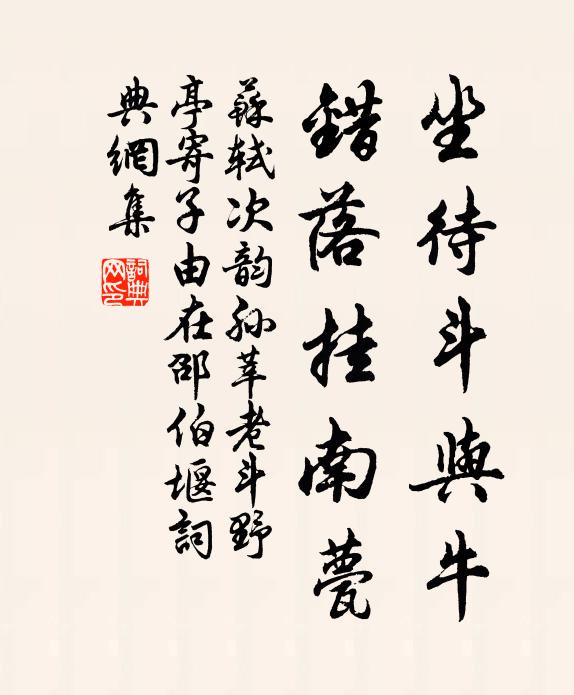 坐待斗與牛
錯落挂南甍
蘇軾次韵孫莘老斗野
亭寄子由在邵伯堰詞
典網集
詞典網印